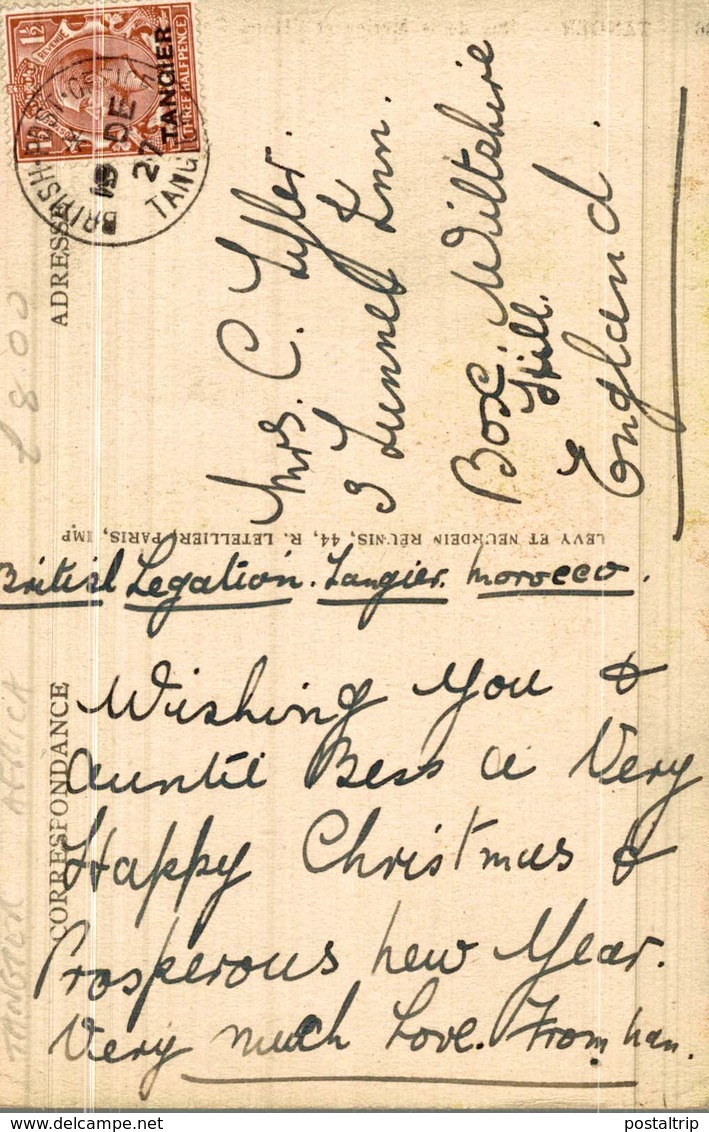 REVENUE
1½
THREE HALFPENCE
TANGIER
BRITISH POST OFFICE
19 DE
27
TANG
ADRESSE
£8.00
Mrs. C.
3 Tunnel Inn.
Box. Wiltshire
Hill.
England.
LEVY ET NEURDEIN RÉUNIS, 44, R. LETELLIER, PARIS, IMP
British Legation. Tangier. Morocco.
CORRESPONDANCE
TANGIER AFRICA
Wishing You &
Auntie Bess a Very
Happy Christmas &
Prosperous new Year.
Very much Love. From
postaltrip